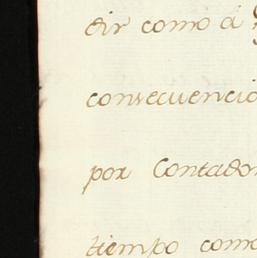 dir como á
consecuencia
por Contador
tiempo como